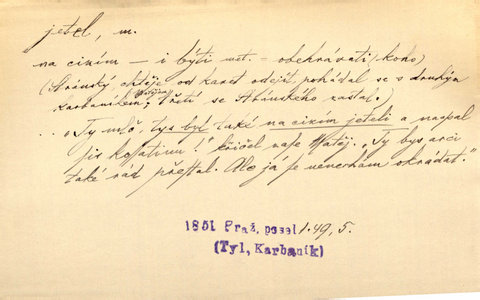 jetel, m.
na cizím — i býti met. = obehrávati (koho)
(Stránský chtěje od karet odejít, pohádal se s druhým
karbaníkem, Matějem třetí se Stránského zastal.)
... „Ty mlč, tys byl také na cizím jeteli a naspal
jsi kapsu!" křičel naše Matěj. „Ty bys arci
také rád přestal. Ale já se nenechám okrádat."
1851 Praž. posel 1.49,5.
(Tyl, Karbaník)